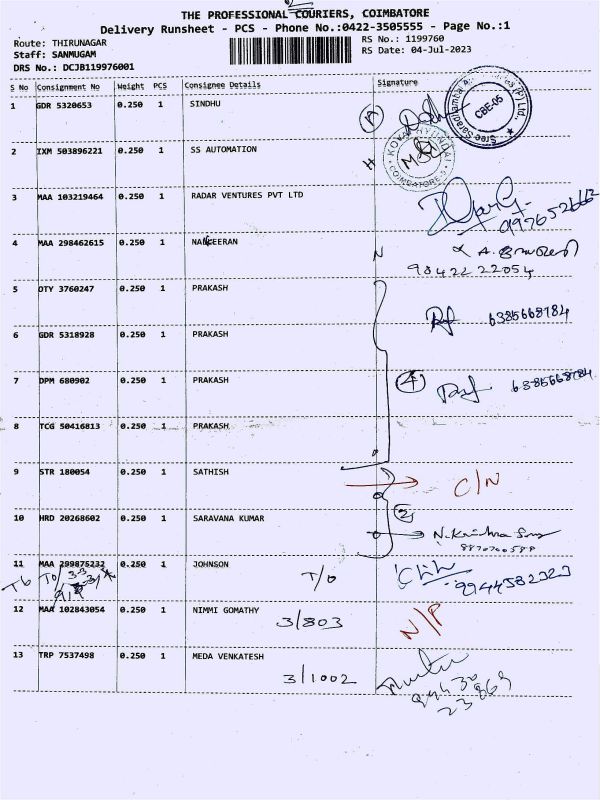 THE PROFESSIONAL COURIERS, COIMBATORE
Delivery Runsheet - PCS - Phone No.:0422-3505555 - Page No.:1
Route: THIRUNAGAR
Staff: SANMUGAM
DRS No.: DCJB119976001
RS No.: 1199760
RS Date: 04-Jul-2023
S No Consignment No Weight PCS Consignee Details Signature
1 GDR 5320653 0.250 1 SINDHU
CBE-05
2 IXM 503896221 0.250 1 SS AUTOMATION
H
KOVAI HYUNDAI
COIMBATORE-5
3 MAA 103219464 0.250 1 RADAR VENTURES PVT LTD
4 MAA 298462615 0.250 1 NAKEERAN
N
98422 22054
5 OTY 3760247 0.250 1 PRAKASH
6385668784
6 GDR 5318928 0.250 1 PRAKASH
7 DPM 680902 0.250 1 PRAKASH
4
6385668784
8 TCG 50416813 0.250 1 PRAKASH
9 STR 180054 0.250 1 SATHISH
C/N
10 HRD 20268602 0.250 1 SARAVANA KUMAR
2
8870700588
11 MAA 299875232 0.250 1 JOHNSON
T/0
9944582323
12 MAA 102843054 0.250 1 NIMMI GOMATHY
3/803
N/P
13 TRP 7537498 0.250 1 MEDA VENKATESH
3/1002